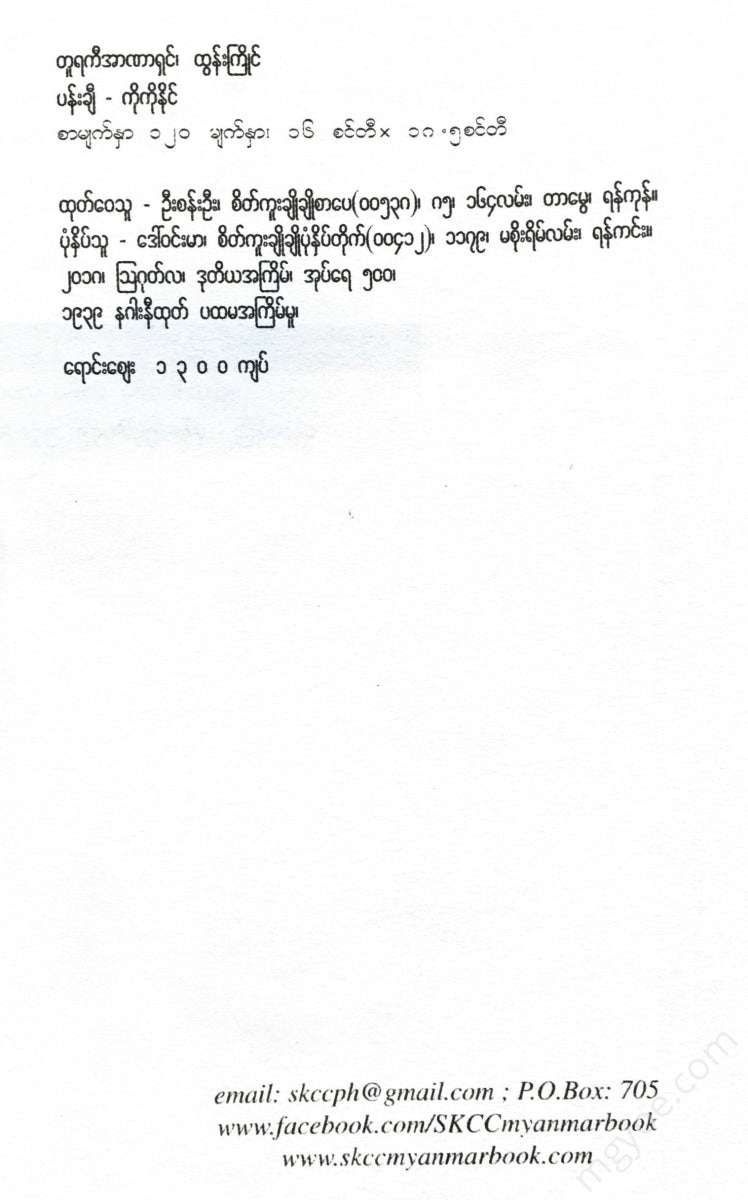 တူရကီအာဏာရှင်၊ ထွန်းကြိုင်
ပန်းချီ - ကိုကိုနိုင်
စာမျက်နှာ ၁၂၀ မျက်နှာ၊ ၁၆ စင်တီ× ၁၈.၅စင်တီ
ထုတ်ဝေသူ - ဦးစန်းဦး၊ စိတ်ကူးချိုချိုစာပေ(၀၀၅၃၈)၊ ၈၅၊ ၁၆၄လမ်း၊ တာမွေ၊ ရန်ကုန်။
ပုံနှိပ်သူ - ဒေါ်ဝင်းမာ၊ စိတ်ကူးချိုချိုပုံနှိပ်တိုက်(၀၀၄၁၂)၊ ၁၁၇၉၊ မစိုးရိမ်လမ်း၊ ရန်ကင်း။
၂၀၁၈၊ သြဂုတ်လ၊ ဒုတိယအကြိမ်၊ အုပ်ရေ ၅၀၀၊
၁၉၃၉ နဂါးနီထုတ် ပထမအကြိမ်မူ၊
ရောင်းဈေး ၁ ၃ ၀ ၀ ကျပ်
email: skccph@gmail.com ; P.O.Box: 705
www.facebook.com/SKCCmyanmarbook
www.skccmyanmarbook.com
mgyoe.com